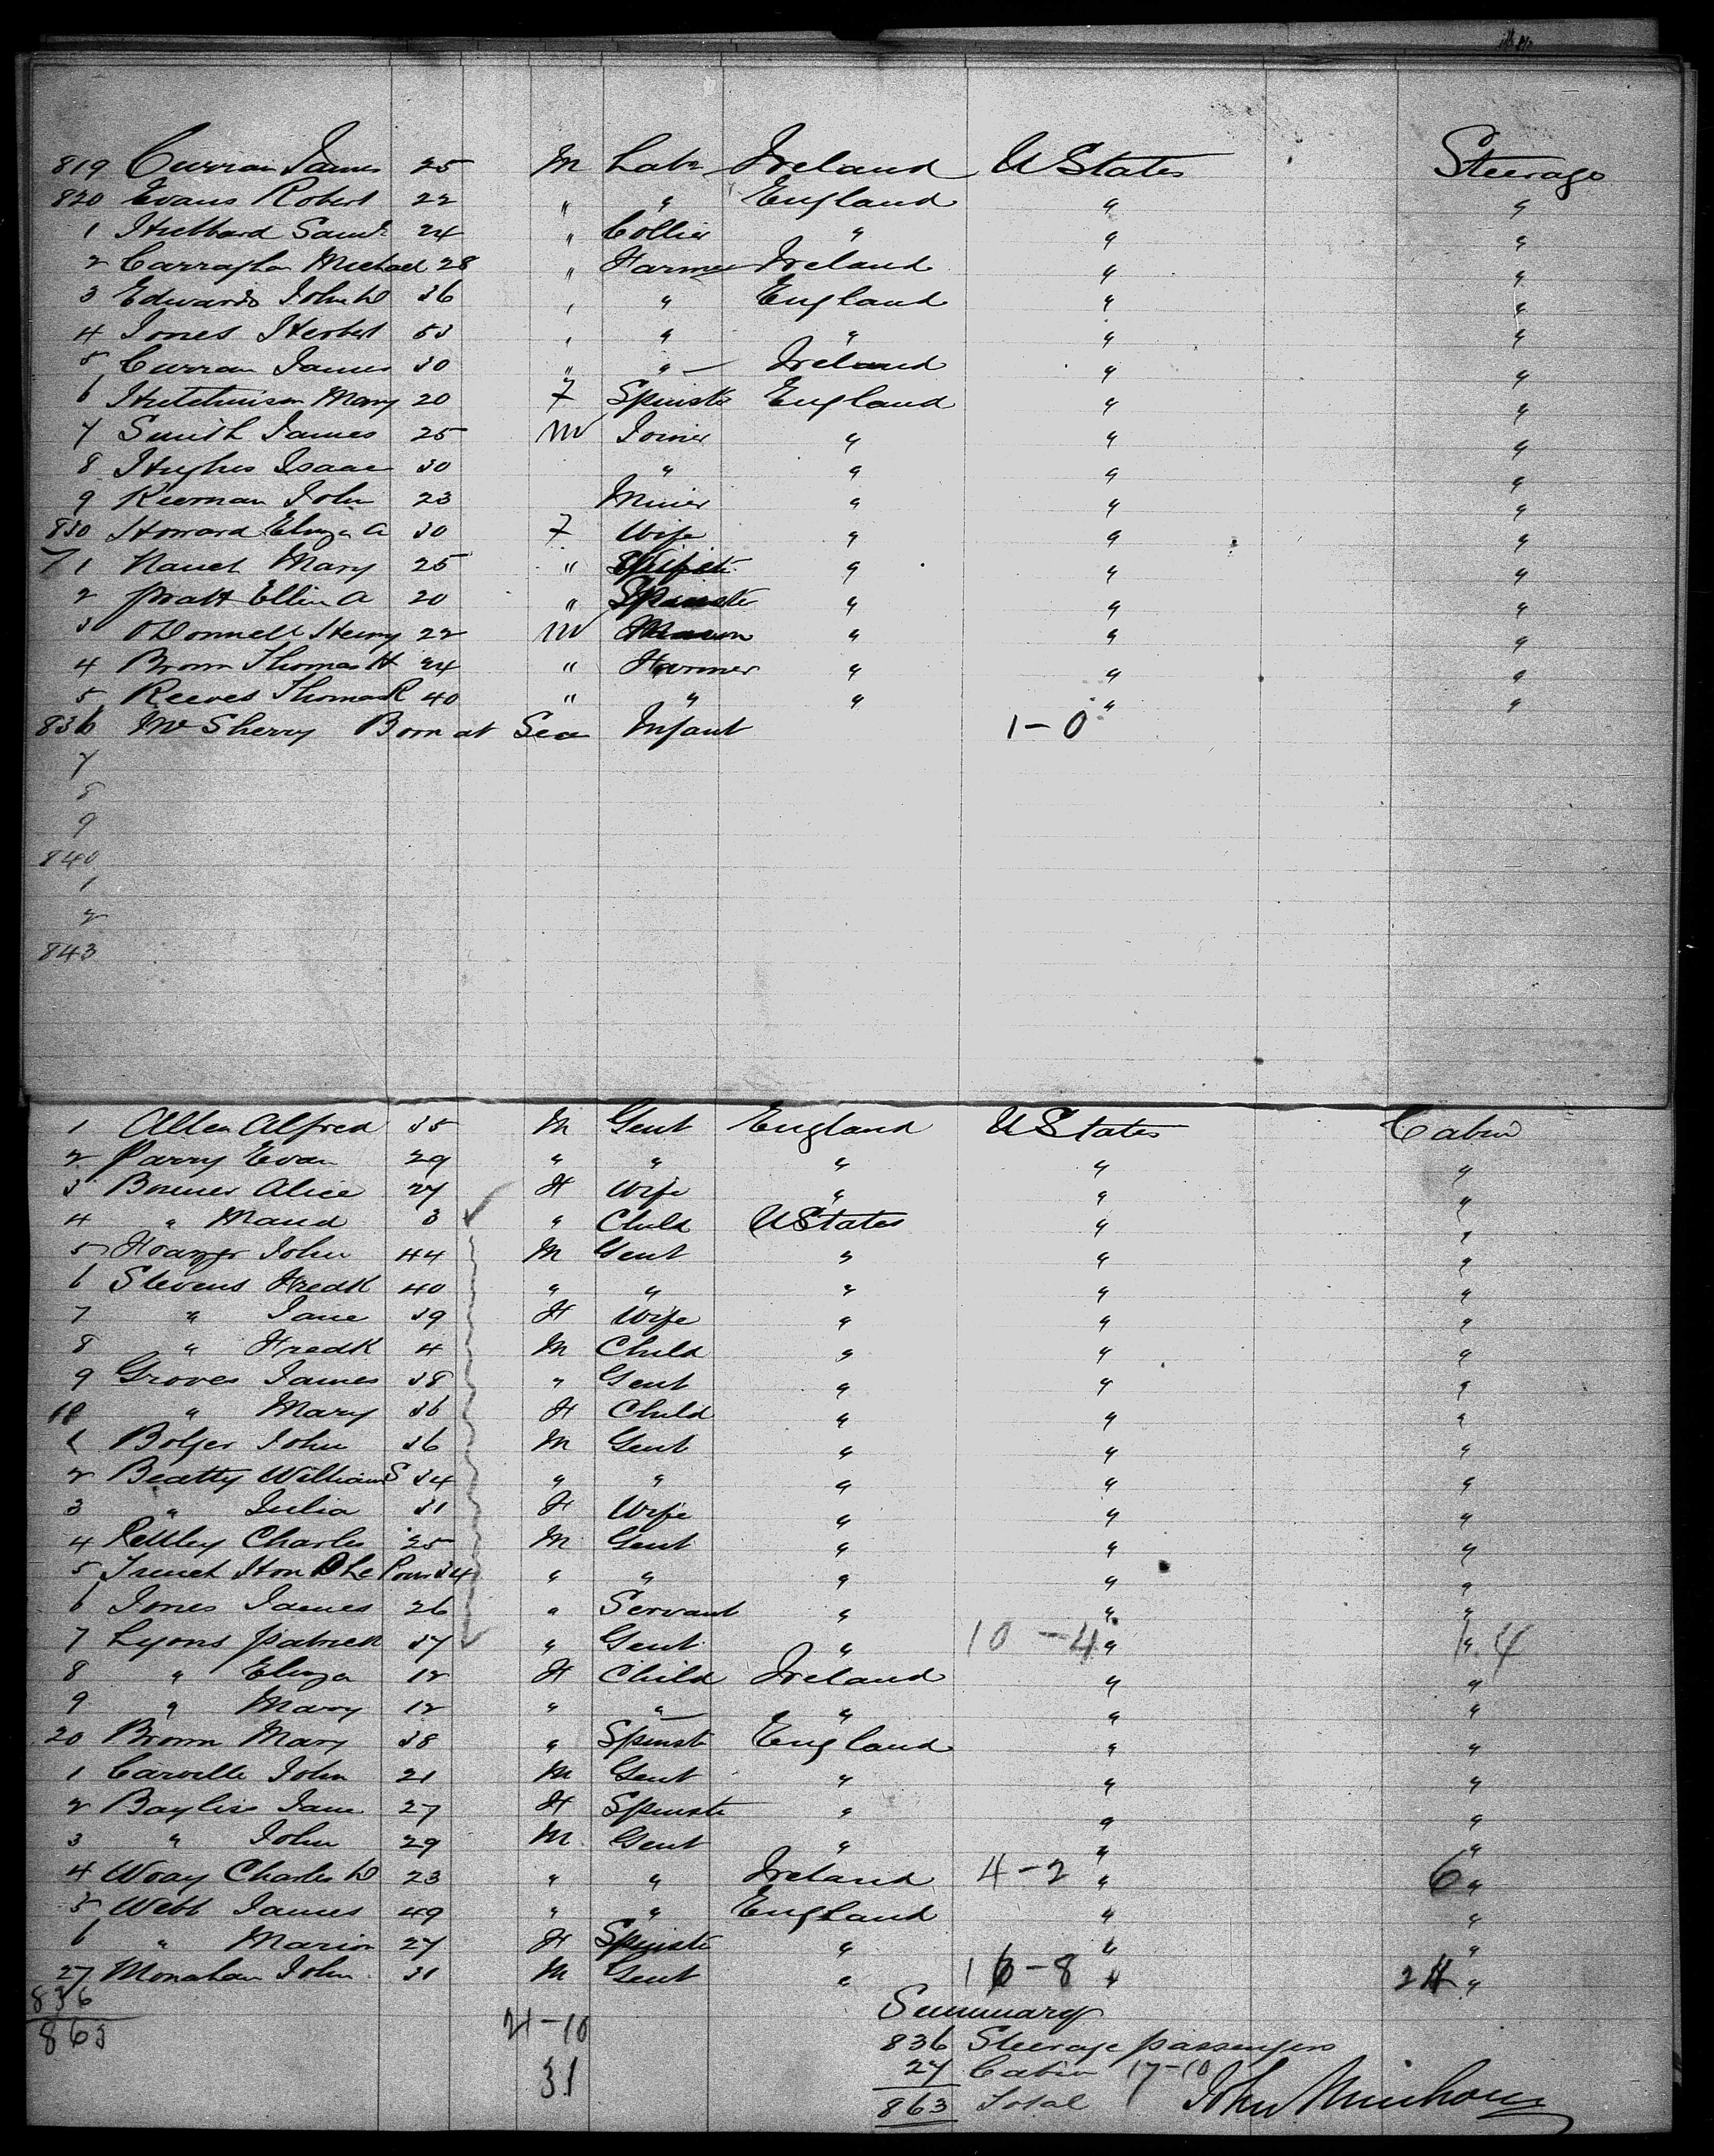 819 Curran James 25 M Labr Ireland U States Steerage
820 Evans Robert 22 " " England " "
1 Hubbard Saml 24 " Collier " " "
2 Carragher Michael 28 " Farmer Ireland " "
3 Edwards John D 36 " " England " "
4 Jones Herbert 53 " " " " "
5 Curran James 30 " " Ireland " "
6 Hutchinson Mary 20 F Spinstr England " "
7 Smith James 25 M Joiner " " "
8 Hughes Isaac 30 " " " "
9 Keernan John 23 Miner " " "
830 Howard Eliza A 30 F Wife " " "
1 Mary 25 " " " "
2 Pratt Ellen A 20 " Spinster " " "
3 O'Donnell Henry 22 M " " "
4 Brown Thomas H 24 " Farmer " " "
5 Reeves Thomas R 40 " " " " "
836 Mc Sherry Born at Sea Infant 1-0
7
8
9
840
1
2
843
1 Allen Alfred 35 M Gent England U States Cabin
2 Parry Evan 29 " " " " "
3 Bonner Alice 27 F Wife " " "
4 " Maud 3 " Child U States " "
5 John 44 M Gent " " "
6 Stevens Fredk 40 " " " " "
7 " Jane 39 F Wife " " "
8 " Fredk 4 M Child " " "
9 Groves James 38 " Gent " " "
10 " Mary 36 F Child " " "
1 Bolger John 36 M Gent " " "
2 Beatty William S 34 " " " " "
3 " Julia 31 F Wife " " "
4 Charles 25 M Gent " " "
5 Trench Hon Le Poer 34 " " " " "
6 Jones James 26 " Servant " " "
7 Lyons Patrick 37 " Gent " 10-4 " "
8 " Eliza 12 F Child Ireland " "
9 " Mary 12 " " " " "
20 Brown Mary 38 " Spinst England " "
1 Carville John 21 M Gent " " "
2 Bayliss Jane 27 F Spinste " " "
3 " John 29 M Gent " " "
4 Wray Charles D 23 " " Ireland 4-2 " 6 "
5 Webb James 49 " " England " "
6 " Marion 27 F Spinste " " "
27 Monahan John 31 M Gent " 16-8 " 24 "
836
863
21-10
31
Summary
836 Steerage passengers
27 Cabin 17-10
863 Total
John